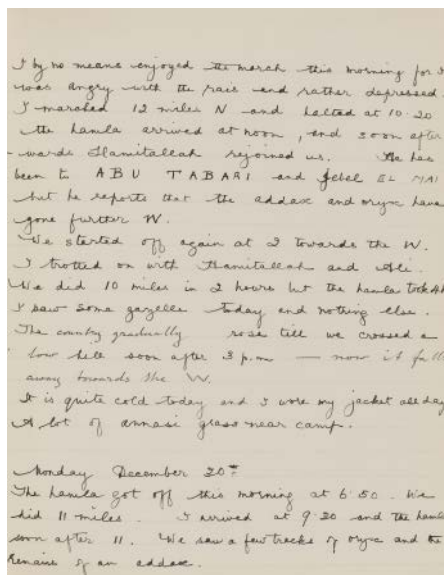 I by no means enjoyed the march this morning for I
was angry with the rais and rather depressed.
I marched 12 miles N and halted at 10.20
the hamla arrived at noon, and soon after
-wards Hamitallah rejoined us. He has
been to ABU TABARI and Jebel EL MAI
but he reports that the addax and oryx have
gone further W.
We started off again at 2 towards the W.
I trotted on with Hamitallah and Ali.
We did 10 miles in 2 hours but the hamla took 4h
I saw some gazelle today and nothing else.
The country gradually rose till we crossed a
low hill soon after 3 p.m — now it fall
away towards the W.
It is quite cold today and I wore my jacket all day
A lot of annasi grass near camp.
Monday December 20th
The hamla got off this morning at 6.50. We
did 11 miles. I arrived at 9.20 and the hamla
soon after 11. We saw a few tracks of oryx and the
remains of an addax.